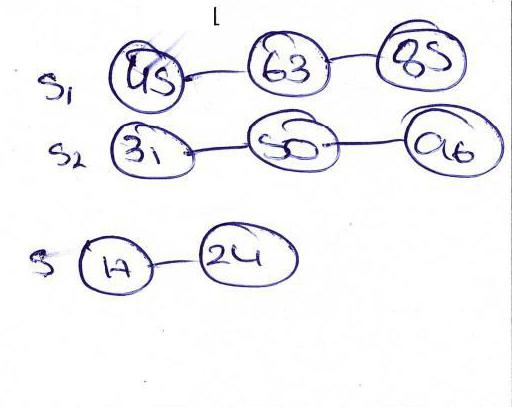 S1 45 63 85
S2 31 50 96
S 17 24